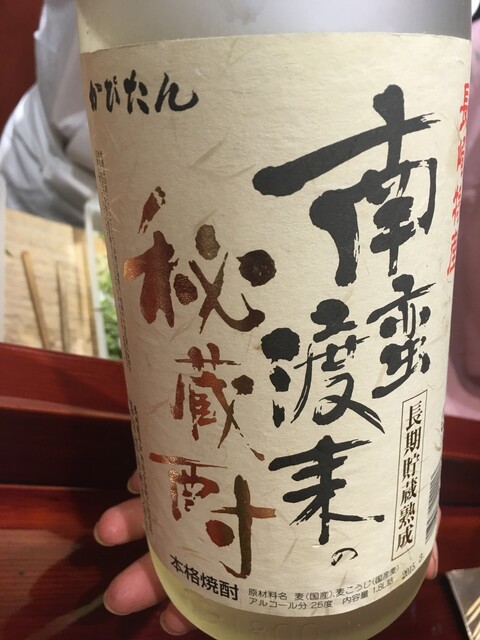 かぴたん
長崎特産
南蛮渡来の
秘蔵酎
長期貯蔵熟成
本格焼酎
原材料名 麦(国産)、麦こうじ(国産麦)
アルコール分 25度 内容量 1.8L詰